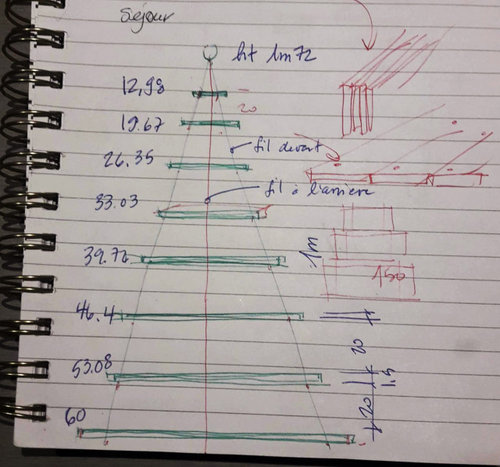 Séjour
ht 1m72
12,98
20
19.67
26.35
fil devant
33.03
fil à l'arrière
39.72
1m
150
46.4
20
53.08
1.5
20
60